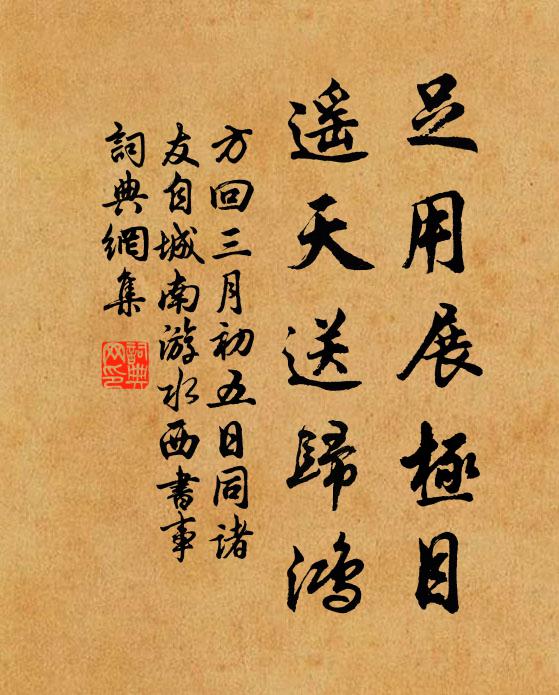 足用展極目
遥天送歸鴻
方回三月初五日同諸
友自城南游水西書事
詞典網集
詞典
网印